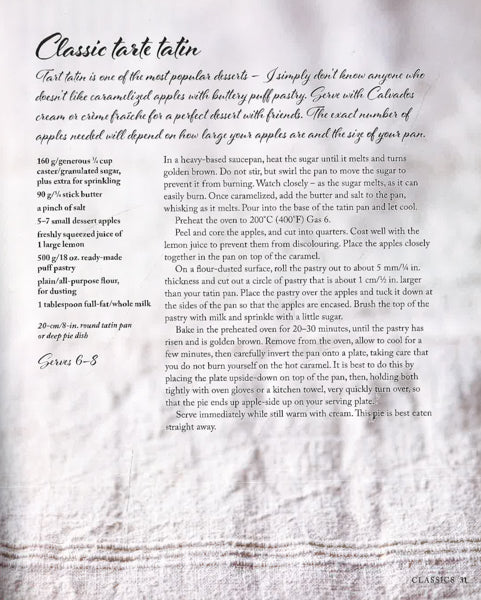 Classic tarte tatin
Tart tatin is one of the most popular desserts – I simply don't know anyone who
doesn't like caramelized apples with buttery puff pastry. Serve with Calvados
cream or crème fraîche for a perfect dessert with friends. The exact number of
apples needed will depend on how large your apples are and the size of your pan.
160 g/generous ¾ cup
caster/granulated sugar,
plus extra for sprinkling
90 g/¾ stick butter
a pinch of salt
5–7 small dessert apples
freshly squeezed juice of
1 large lemon
500 g/18 oz. ready-made
puff pastry
plain/all-purpose flour,
for dusting
1 tablespoon full-fat/whole milk
20-cm/8-in. round tatin pan
or deep pie dish
Serves 6–8
In a heavy-based saucepan, heat the sugar until it melts and turns
golden brown. Do not stir, but swirl the pan to move the sugar to
prevent it from burning. Watch closely – as the sugar melts, as it can
easily burn. Once caramelized, add the butter and salt to the pan,
whisking as it melts. Pour into the base of the tatin pan and let cool.
Preheat the oven to 200°C (400°F) Gas 6.
Peel and core the apples, and cut into quarters. Coat well with the
lemon juice to prevent them from discolouring. Place the apples closely
together in the pan on top of the caramel.
On a flour-dusted surface, roll the pastry out to about 5 mm/¼ in.
thickness and cut out a circle of pastry that is about 1 cm/½ in. larger
than your tatin pan. Place the pastry over the apples and tuck it down at
the sides of the pan so that the apples are encased. Brush the top of the
pastry with milk and sprinkle with a little sugar.
Bake in the preheated oven for 20–30 minutes, until the pastry has
risen and is golden brown. Remove from the oven, allow to cool for a
few minutes, then carefully invert the pan onto a plate, taking care that
you do not burn yourself on the hot caramel. It is best to do this by
placing the plate upside-down on top of the pan, then, holding both
tightly with oven gloves or a kitchen towel, very quickly turn over, so
that the pie ends up apple-side up on your serving plate.
Serve immediately while still warm with cream. This pie is best eaten
straight away.
CLASSICS 31